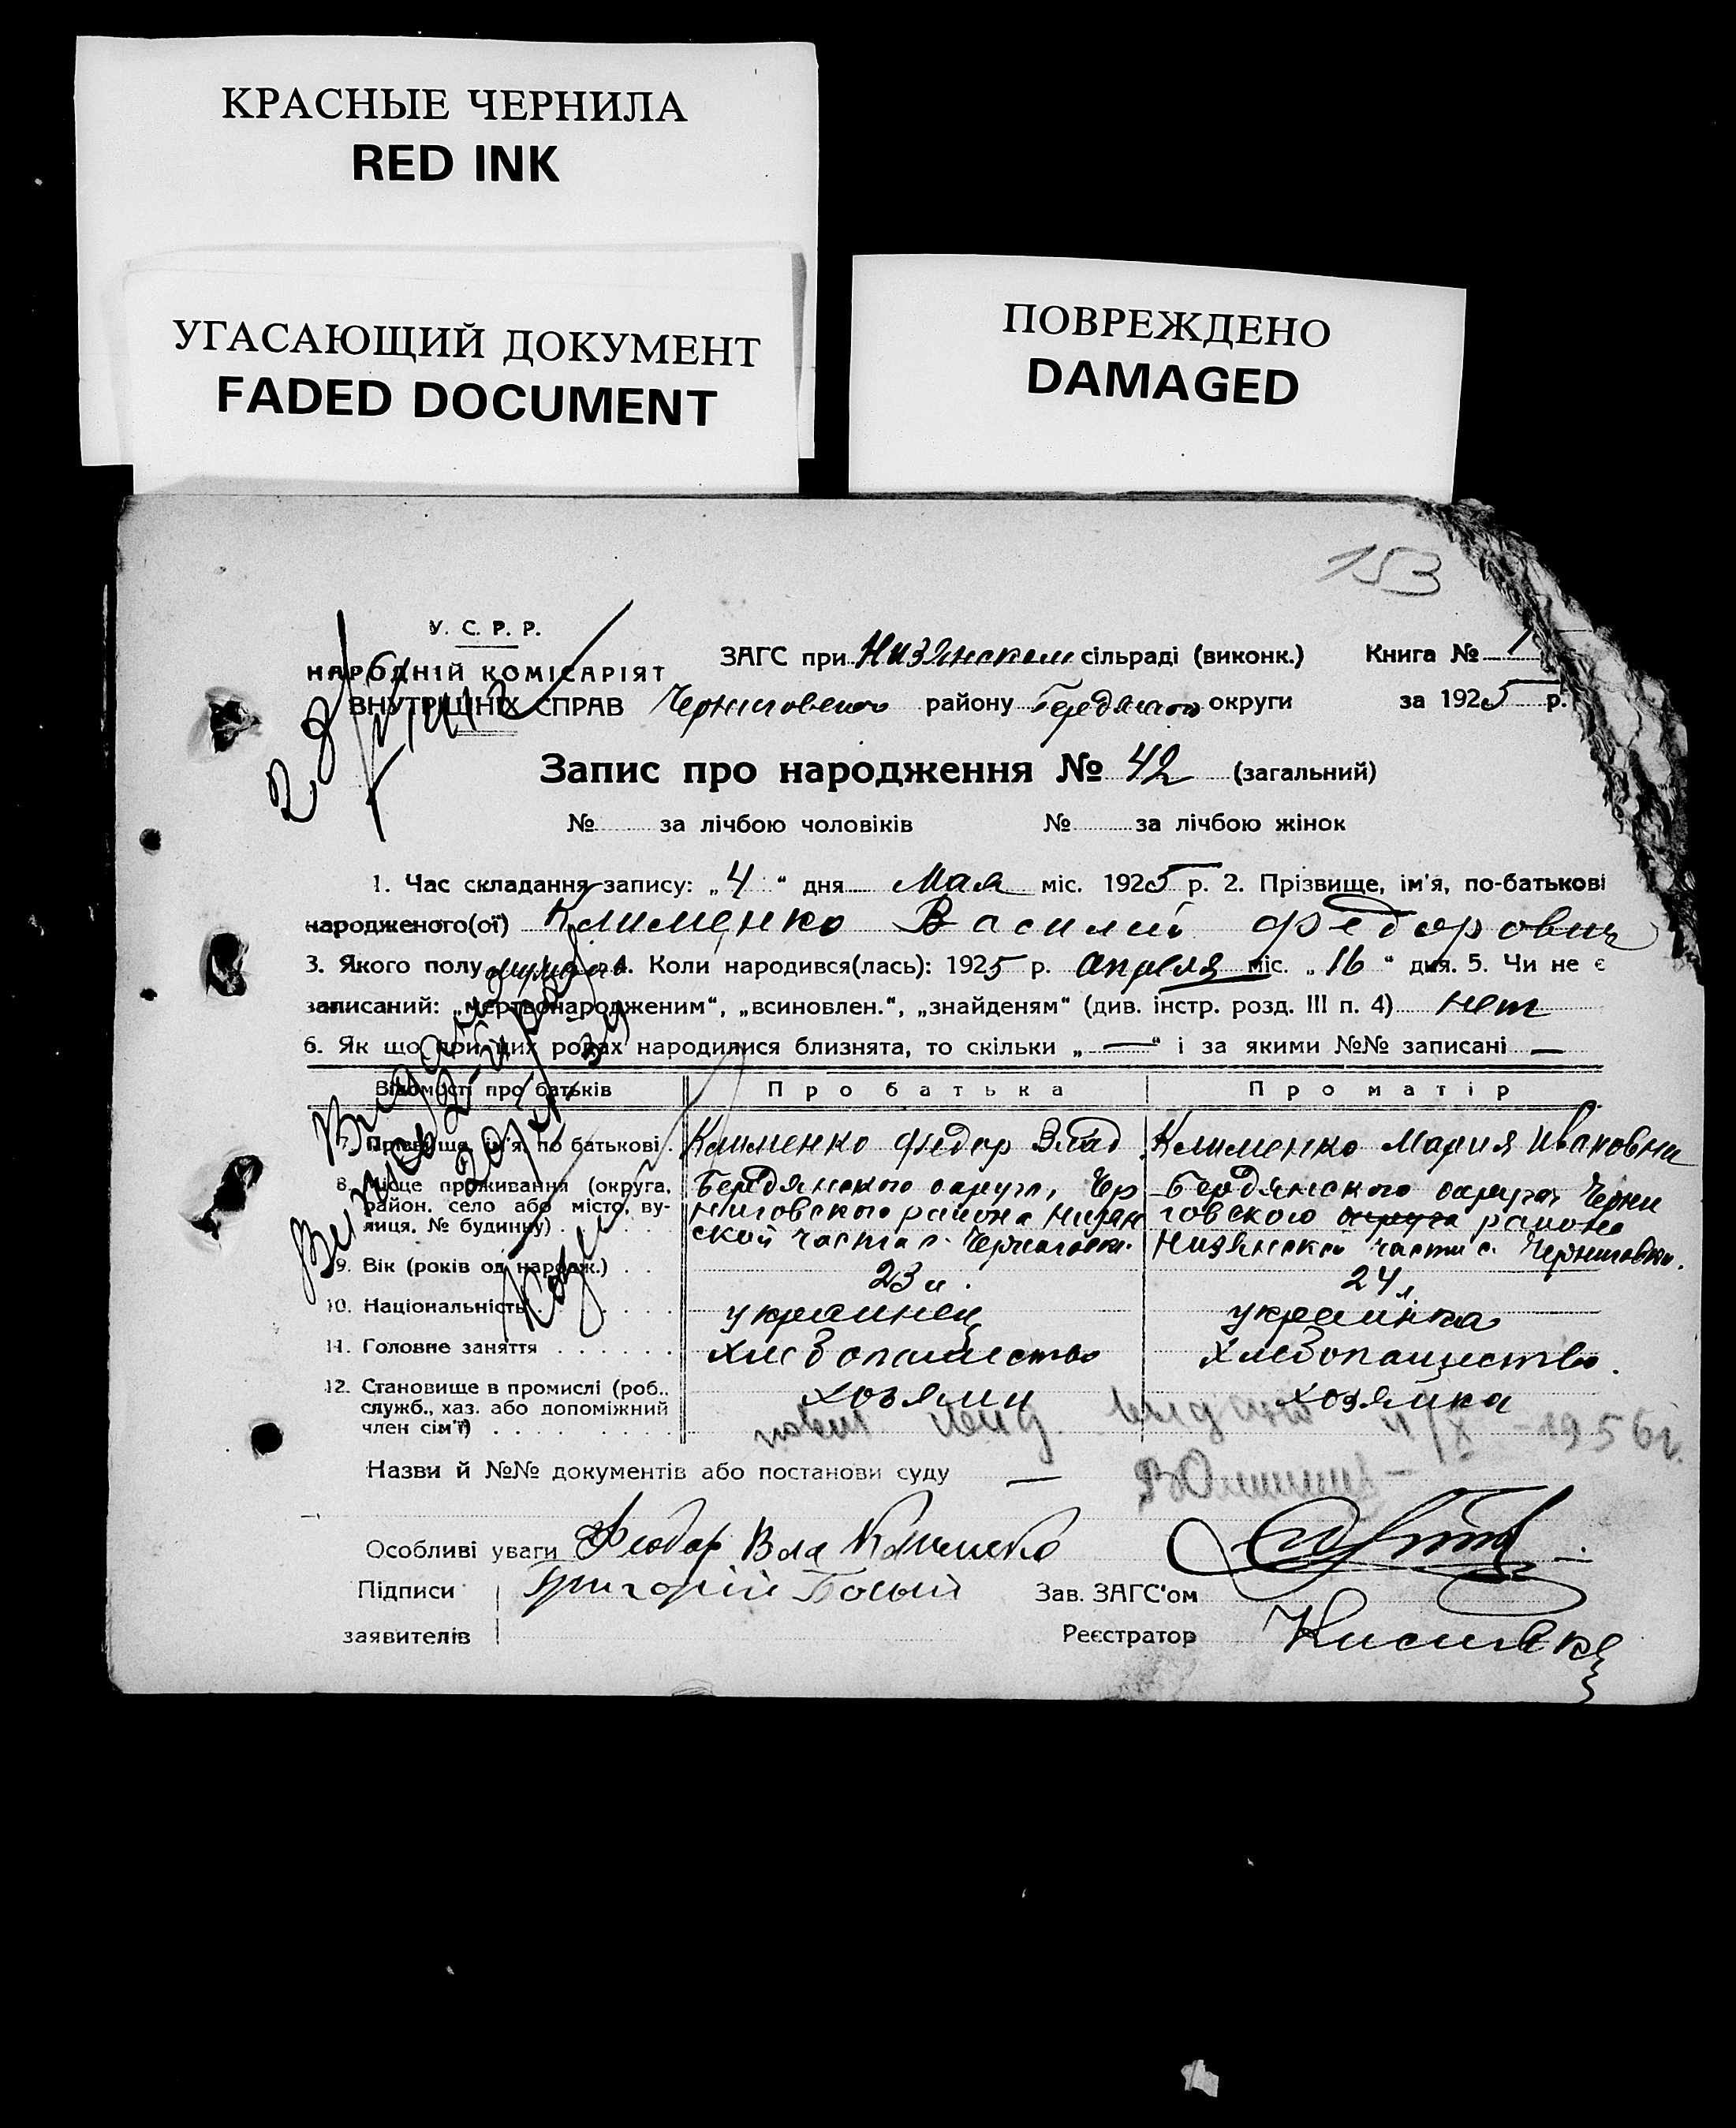 КРАСНЫЕ ЧЕРНИЛА
RED INK
УГАСАЮЩИЙ ДОКУМЕНТ
FADED DOCUMENT
ПОВРЕЖДЕНО
DAMAGED
153
У. С. Р. Р.
НАРОДНІЙ КОМІСАРІЯТ
ВНУТРІШНІХ СПРАВ
ЗАГС при Низянском сільраді (виконк.) Книга № 1
Черниговского району Бердянской округи за 1925 р.
Запис про народження № 42 (загальний)
№ за лічбою чоловіків № за лічбою жінок
1. Час складання запису: „4“ дня Мая міс. 1925 р. 2. Прізвище, ім'я, по-батькові
народженого(ої) Клименко Василий Федорович
3. Якого полу 4. Коли народився(лась): 1925 р. апреля міс. „16“ дня. 5. Чи не є
записаний: „мертвонародженим“, „всиновлен.“, „знайденям“ (див. інстр. розд. III п. 4) нет
6. Як що при цих родах народилися близнята, то скільки „—“ і за якими №№ записані —
Відомості про батьків Про батька Про матір
7. Прізвище, ім'я, по батькові. Клименко Федор Влад Клименко Мария Ивановна
8. Місце проживання (округа, район, село або місто, вулиця, № будинку)
Бердянского округа, Чер
ниговского района Низян
ской части с. Черниговки.
Бердянского округа Черни
говского округа района
Низянской части с. Черниговки.
9. Вік (років од народж.) 23 л. 24 л.
10. Національність украинец украинка
11. Головне заняття хлебопашество хлебопашество.
12. Становище в промислі (роб., служб., хаз. або допоміжний член сім'ї) хозяин хозяйка
выдано 11/X - 1956г.
Назви й №№ документів або постанови суду —
Особливі уваги Феодор Вла Клименко
Підписи Григорій Зав. ЗАГС'ом
заявителів Реєстратор